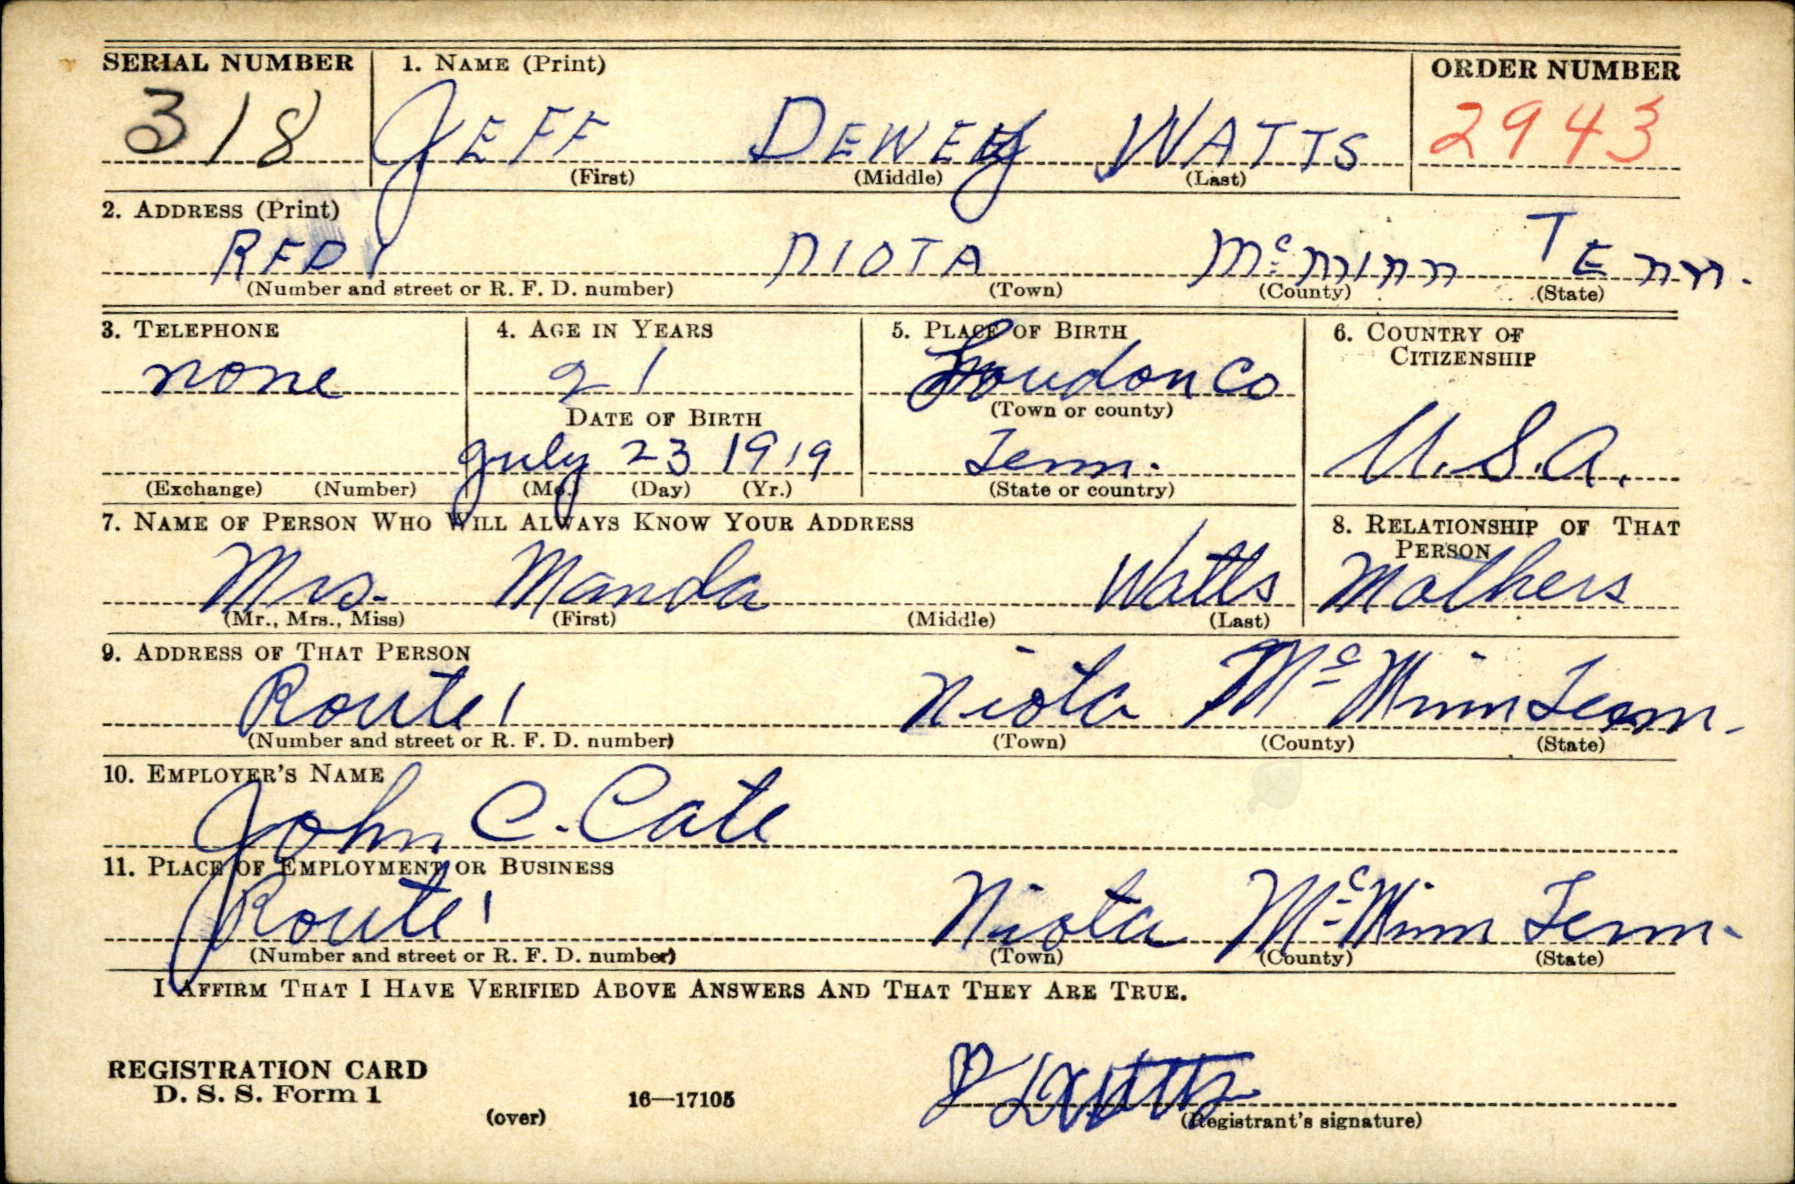 SERIAL NUMBER 1. NAME (Print) ORDER NUMBER
318 JEFF DEWEY WATTS 2943
(First) (Middle) (Last)
2. ADDRESS (Print)
RFD 1 NIOTA McMINN TENN.
(Number and street or R. F. D. number) (Town) (County) (State)
3. TELEPHONE 4. AGE IN YEARS 5. PLACE OF BIRTH 6. COUNTRY OF
CITIZENSHIP
none 21 Loudon Co
DATE OF BIRTH (Town or county)
July 23 1919 Tenn. U.S.A.
(Exchange) (Number) (Mo.) (Day) (Yr.) (State or country)
7. NAME OF PERSON WHO WILL ALWAYS KNOW YOUR ADDRESS 8. RELATIONSHIP OF THAT
PERSON
Mrs. Manda Watts Mothers
(Mr., Mrs., Miss) (First) (Middle) (Last)
9. ADDRESS OF THAT PERSON
Route 1 Niota McMinn Tenn.
(Number and street or R. F. D. number) (Town) (County) (State)
10. EMPLOYER'S NAME
John C. Cate
11. PLACE OF EMPLOYMENT OR BUSINESS
Route 1 Niota McMinn Tenn.
(Number and street or R. F. D. number) (Town) (County) (State)
I AFFIRM THAT I HAVE VERIFIED ABOVE ANSWERS AND THAT THEY ARE TRUE.
REGISTRATION CARD
D. S. S. Form 1
(over) 16—17105 J D Watts
(Registrant's signature)